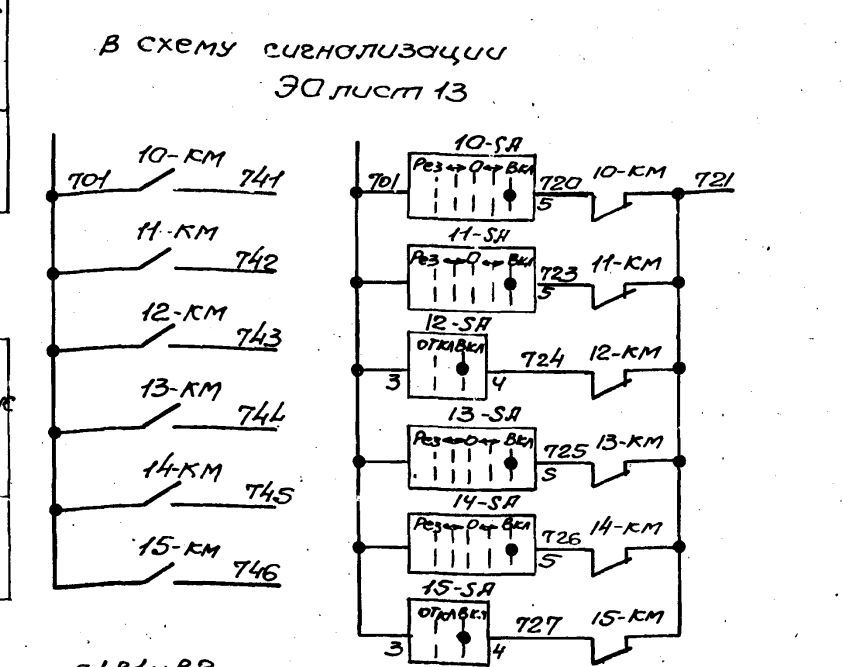 В схему сигнализации
ЭО лист 13
10-КМ
701 741
11-КМ
742
12-КМ
743
13-КМ
744
14-КМ
745
15-КМ
746
10-SA
Рез ↔ 0 ↔ Вкл
701 720 10-КМ 721
5
11-SA
Рез ↔ 0 ↔ Вкл
723 11-КМ
5
12-SA
ОТКЛ ВКЛ
724 12-КМ
3 4
13-SA
Рез ↔ 0 ↔ Вкл
725 13-КМ
5
14-SA
Рез ↔ 0 ↔ Вкл
726 14-КМ
5
15-SA
ОТКЛ ВКЛ
727 15-КМ
3 4